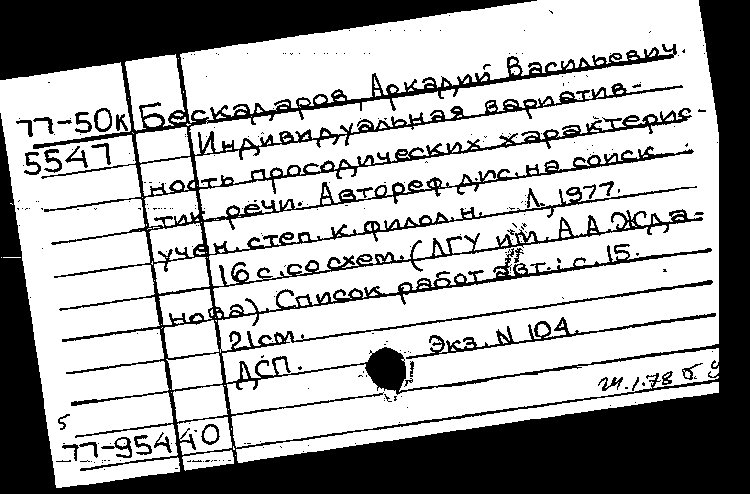 77-50к Бескадаров, Аркадий Васильевич.
5547 Индивидуальная вариатив-
ность просодических характерис-
тик речи. Автореф. дис. на соиск.
учен. степ. к. филол. н. Л., 1977.
16 с. со схем. (ЛГУ им. А.А. Жда=
нова). Список работ авт.: с. 15.
21 см.
ДСП. Экз. N 104.
5
77-95440